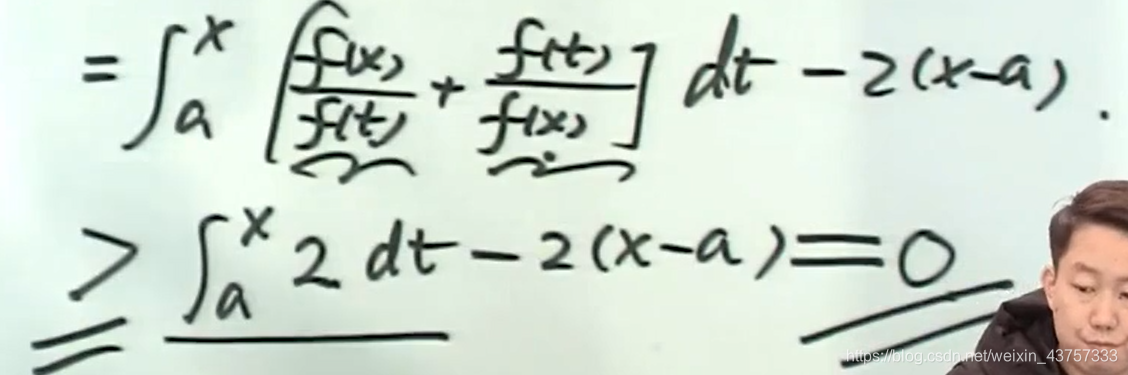 = ∫ₐˣ [f(x)/f(t) + f(t)/f(x)] dt − 2(x−a).
> ∫ₐˣ 2 dt − 2(x−a) = 0
https://blog.csdn.net/weixin_43757333